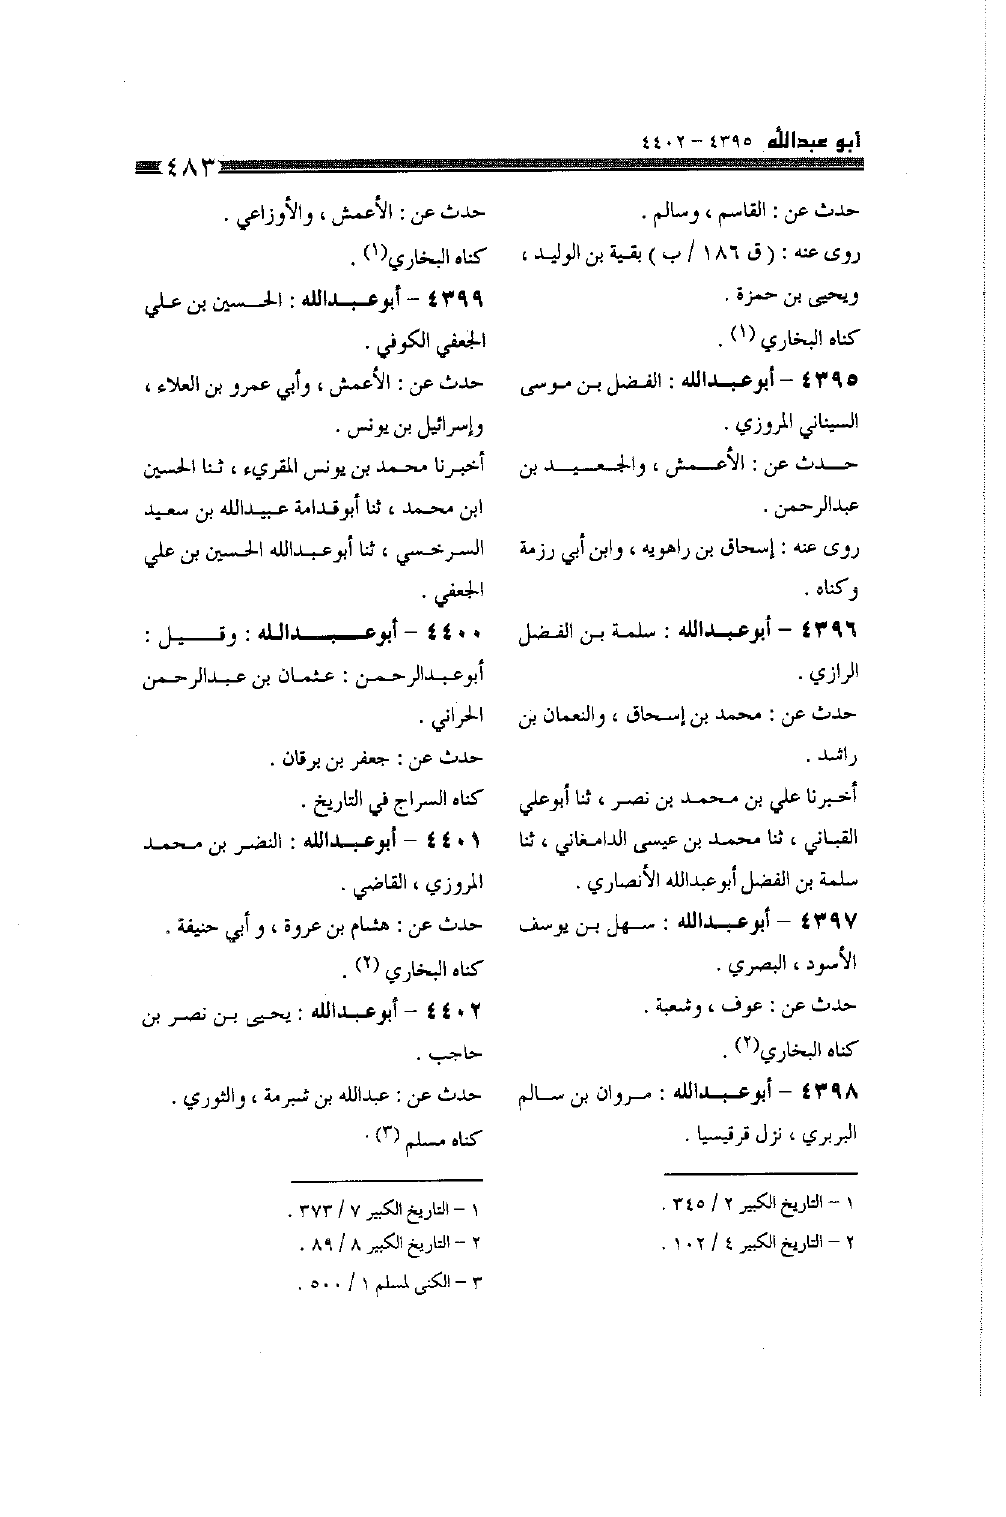 أبو عبدالله ٤٣٩٥ – ٤٤٠٢
٤٨٣
حدث عن : القاسم ، وسالم .
روى عنه : ( ق ١٨٦ / ب ) بقية بن الوليد ،
ويحيى بن حمزة .
كناه البخاري (١) .
٤٣٩٥ – أبوعبدالله : الفضل بن موسى
السيناني المروزي .
حدث عن : الأعمش ، والجعيد بن
عبدالرحمن .
روى عنه : إسحاق بن راهويه ، وابن أبي رزمة
وكناه .
٤٣٩٦ – أبوعبدالله : سلمة بن الفضل
الرازي .
حدث عن : محمد بن إسحاق ، والنعمان بن
راشد .
أخبرنا علي بن محمد بن نصر ، ثنا أبوعلي
القباني ، ثنا محمد بن عيسى الدامغاني ، ثنا
سلمة بن الفضل أبوعبدالله الأنصاري .
٤٣٩٧ – أبوعبدالله : سهل بن يوسف
الأسود ، البصري .
حدث عن : عوف ، وشعبة .
كناه البخاري(٢) .
٤٣٩٨ – أبوعبدالله : مروان بن سالم
البربري ، نزل قرقيسيا .
١ – التاريخ الكبير ٢ / ٣٤٥ .
٢ – التاريخ الكبير ٤ / ١٠٢ .
حدث عن : الأعمش ، والأوزاعي .
كناه البخاري(١) .
٤٣٩٩ – أبوعبدالله : الحسين بن علي
الجعفي الكوفي .
حدث عن : الأعمش ، وأبي عمرو بن العلاء ،
وإسرائيل بن يونس .
أخبرنا محمد بن يونس المقريء ، ثنا الحسين
ابن محمد ، ثنا أبوقدامة عبيدالله بن سعيد
السرخسي ، ثنا أبوعبدالله الحسين بن علي
الجعفي .
٤٤٠٠ – أبوعبدالله : وقيل :
أبوعبدالرحمن : عثمان بن عبدالرحمن
الحراني .
حدث عن : جعفر بن برقان .
كناه السراج في التاريخ .
٤٤٠١ – أبوعبدالله : النضر بن محمد
المروزي ، القاضي .
حدث عن : هشام بن عروة ، و أبي حنيفة .
كناه البخاري (٢) .
٤٤٠٢ – أبوعبدالله : يحيى بن نصر بن
حاجب .
حدث عن : عبدالله بن شبرمة ، والثوري .
كناه مسلم (٣) .
١ – التاريخ الكبير ٧ / ٣٧٣ .
٢ – التاريخ الكبير ٨ / ٨٩ .
٣ – الكنى لمسلم ١ / ٥٠٠ .